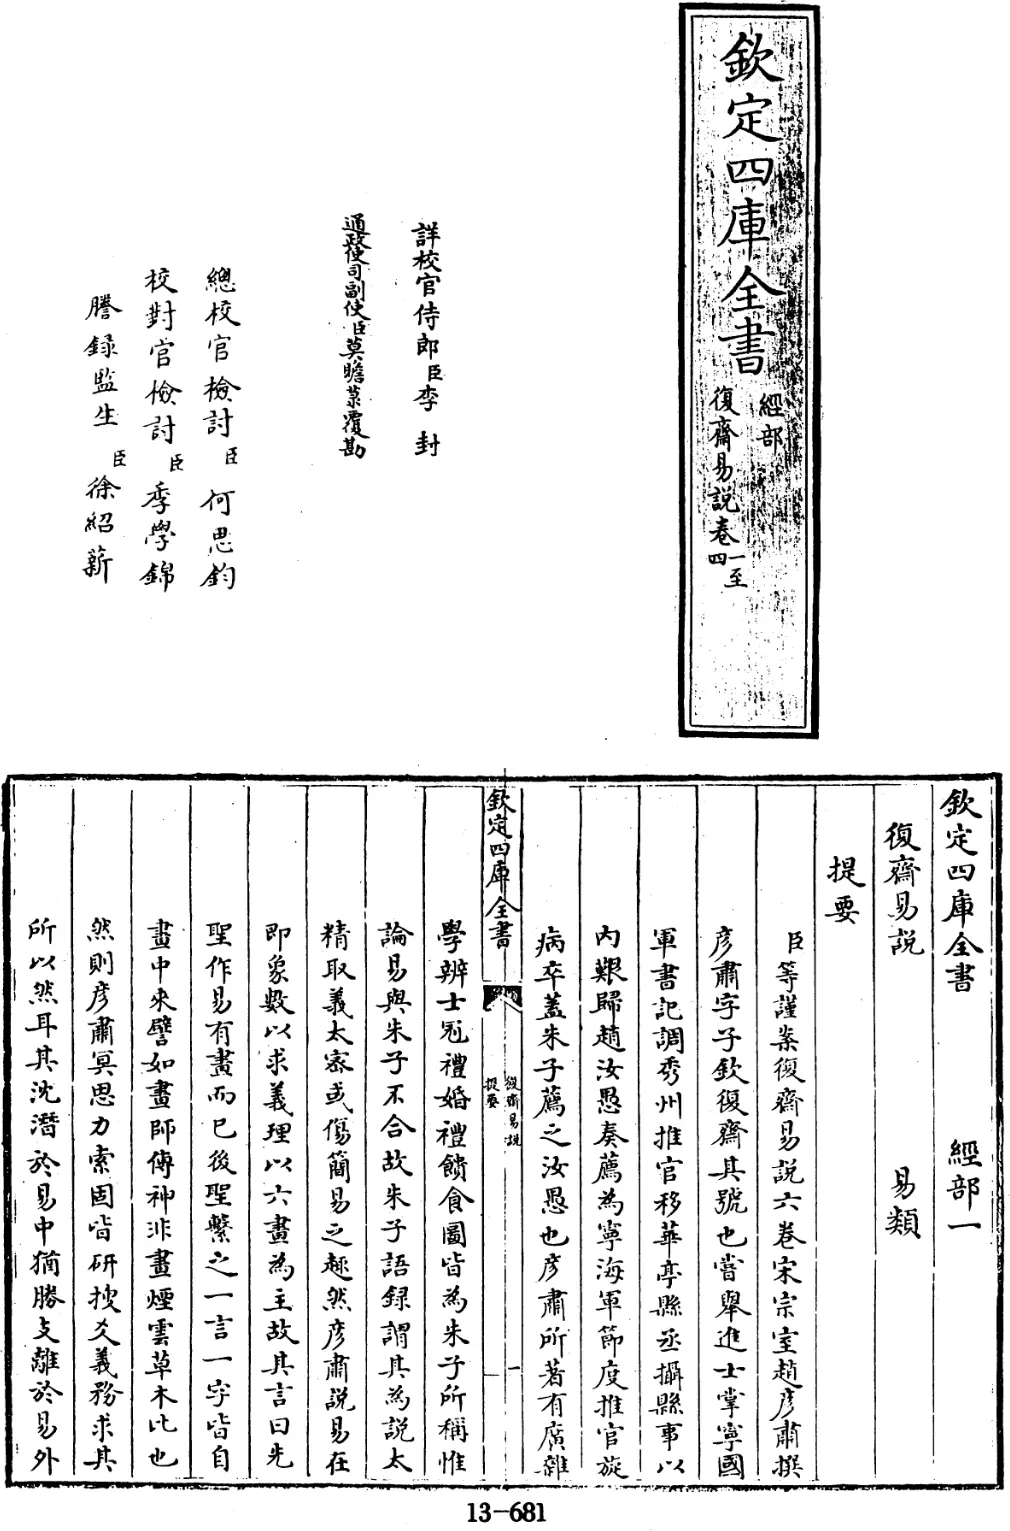 欽定四庫全書
經部
復齋易説卷一至四
詳校官侍郎臣李封
通政使司副使臣莫瞻菉覆勘
總校官檢討臣何思鈞
校對官檢討臣季學錦
謄録監生臣徐紹薪
欽定四庫全書　經部一
復齋易説　易類
提要
臣等謹案復齋易説六卷宋宗室趙彦肅撰
彦肅字子欽復齋其號也嘗舉進士掌寧國
軍書記調秀州推官移華亭縣丞攝縣事以
内艱歸趙汝愚奏薦為寧海軍節度推官旋
病卒蓋朱子薦之汝愚也彦肅所著有廣雜
欽定四庫全書
復齋易説
提要
一
學辨士冠禮婚禮饋食圖皆為朱子所稱惟
論易與朱子不合故朱子語録謂其為説太
精取義太宻或傷簡易之趣然彦肅説易在
即象數以求義理以六畫為主故其言曰先
聖作易有畫而已後聖繫之一言一字皆自
畫中來譬如畫師傳神非畫煙雲草木比也
然則彦肅冥思力索固皆研搜爻義務求其
所以然耳其沈潛於易中猶勝支離於易外
13-681